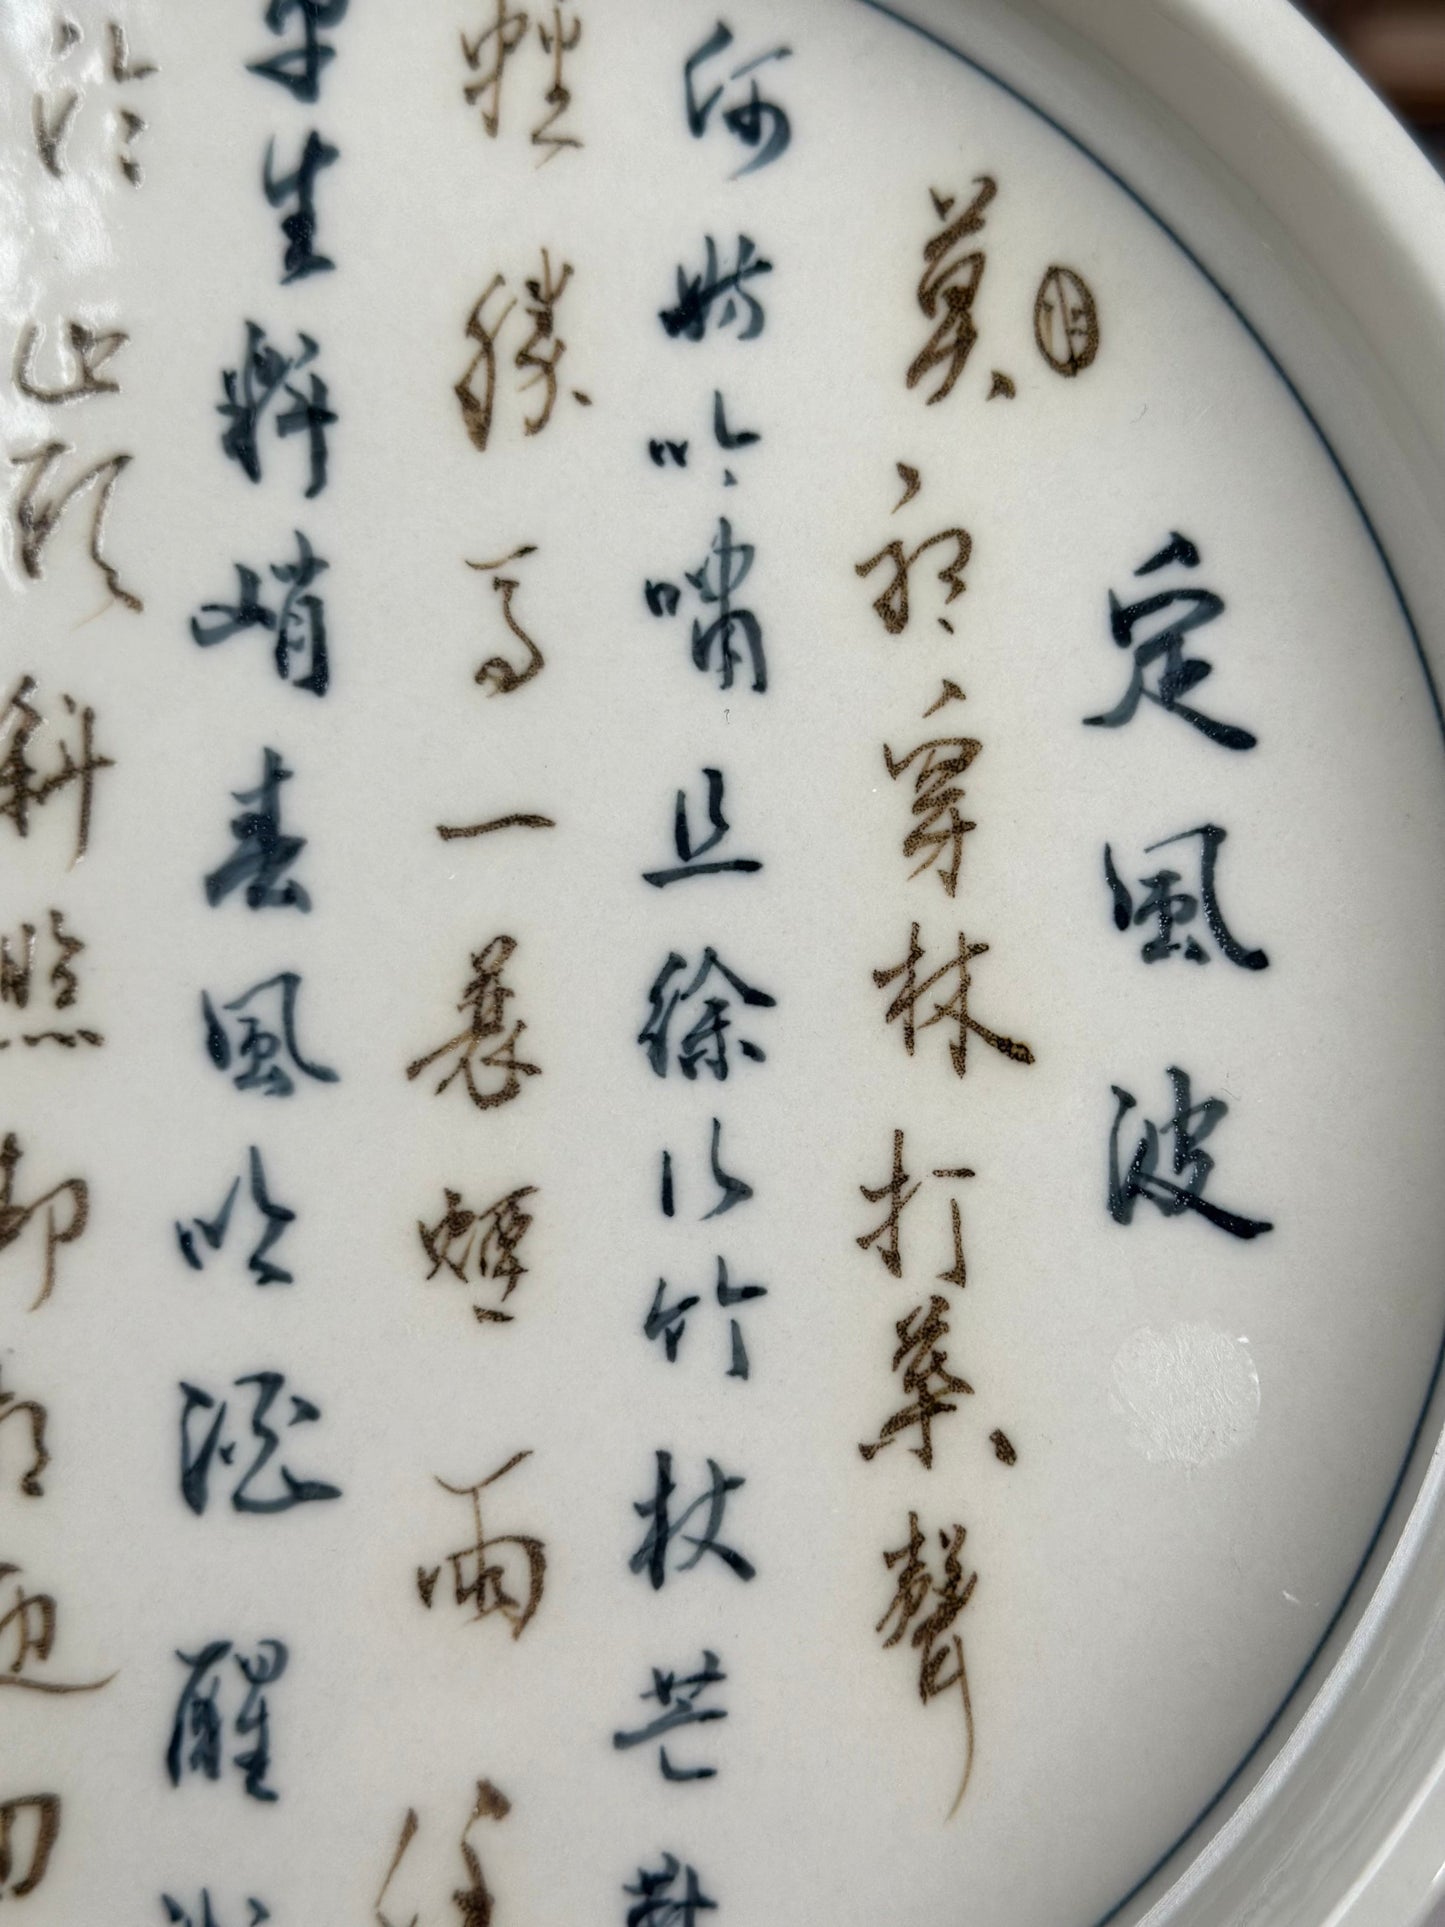 定風波
莫聽穿林打葉聲
何妨吟嘯且徐行竹杖芒鞋
輕勝馬一蓑煙雨任
平生料峭春風吹酒醒
冷山頭斜照却相迎回